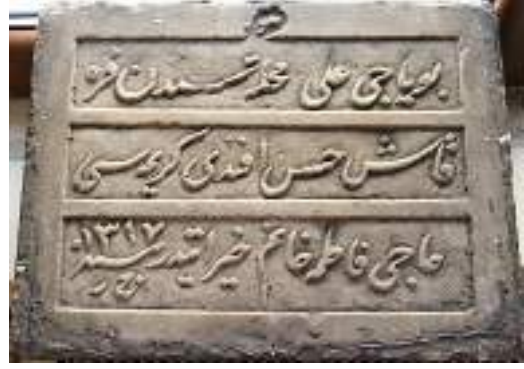 بویاجی علی محله سندن قره
قاش حسن افندی کریمه سی
حاجی فاطمه خانم خیراتیدر سنه ١٣١٧